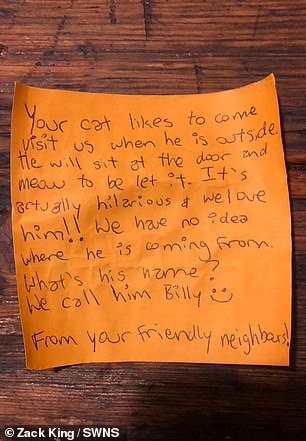 Your cat likes to come
visit us when he is outside.
He will sit at the door and
meow to be let it. It's
actually hilarious & we love
him!! We have no idea
where he is coming from.
What's his name?
We call him Billy :)
From your friendly neighbours!
© Zack King / SWNS